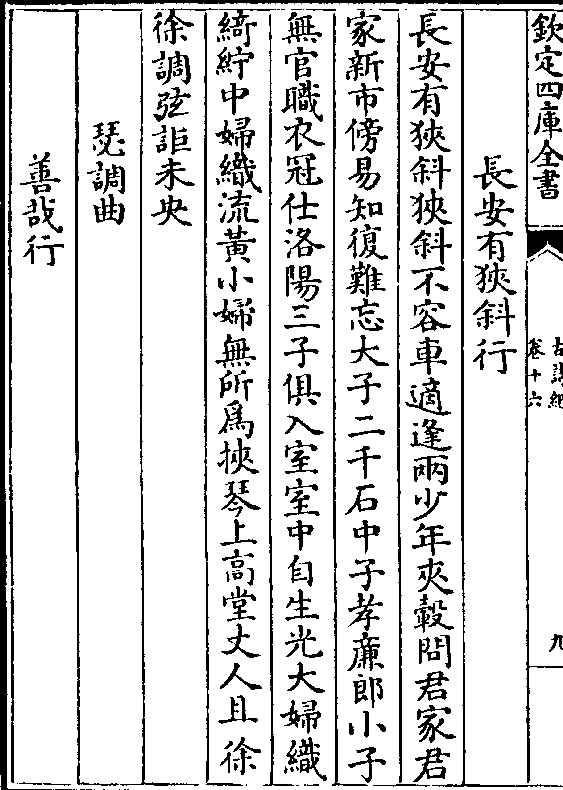 欽定四庫全書
古詩紀
卷十六
九
長安有狹斜行
長安有狹斜狹斜不容車適逢兩少年夾轂問君家君
家新市傍易知復難忘大子二千石中子孝廉郎小子
無官職衣冠仕洛陽三子俱入室室中自生光大婦織
綺紵中婦織流黃小婦無所為挾琴上高堂丈人且徐
徐調弦詎未央
瑟調曲
善哉行